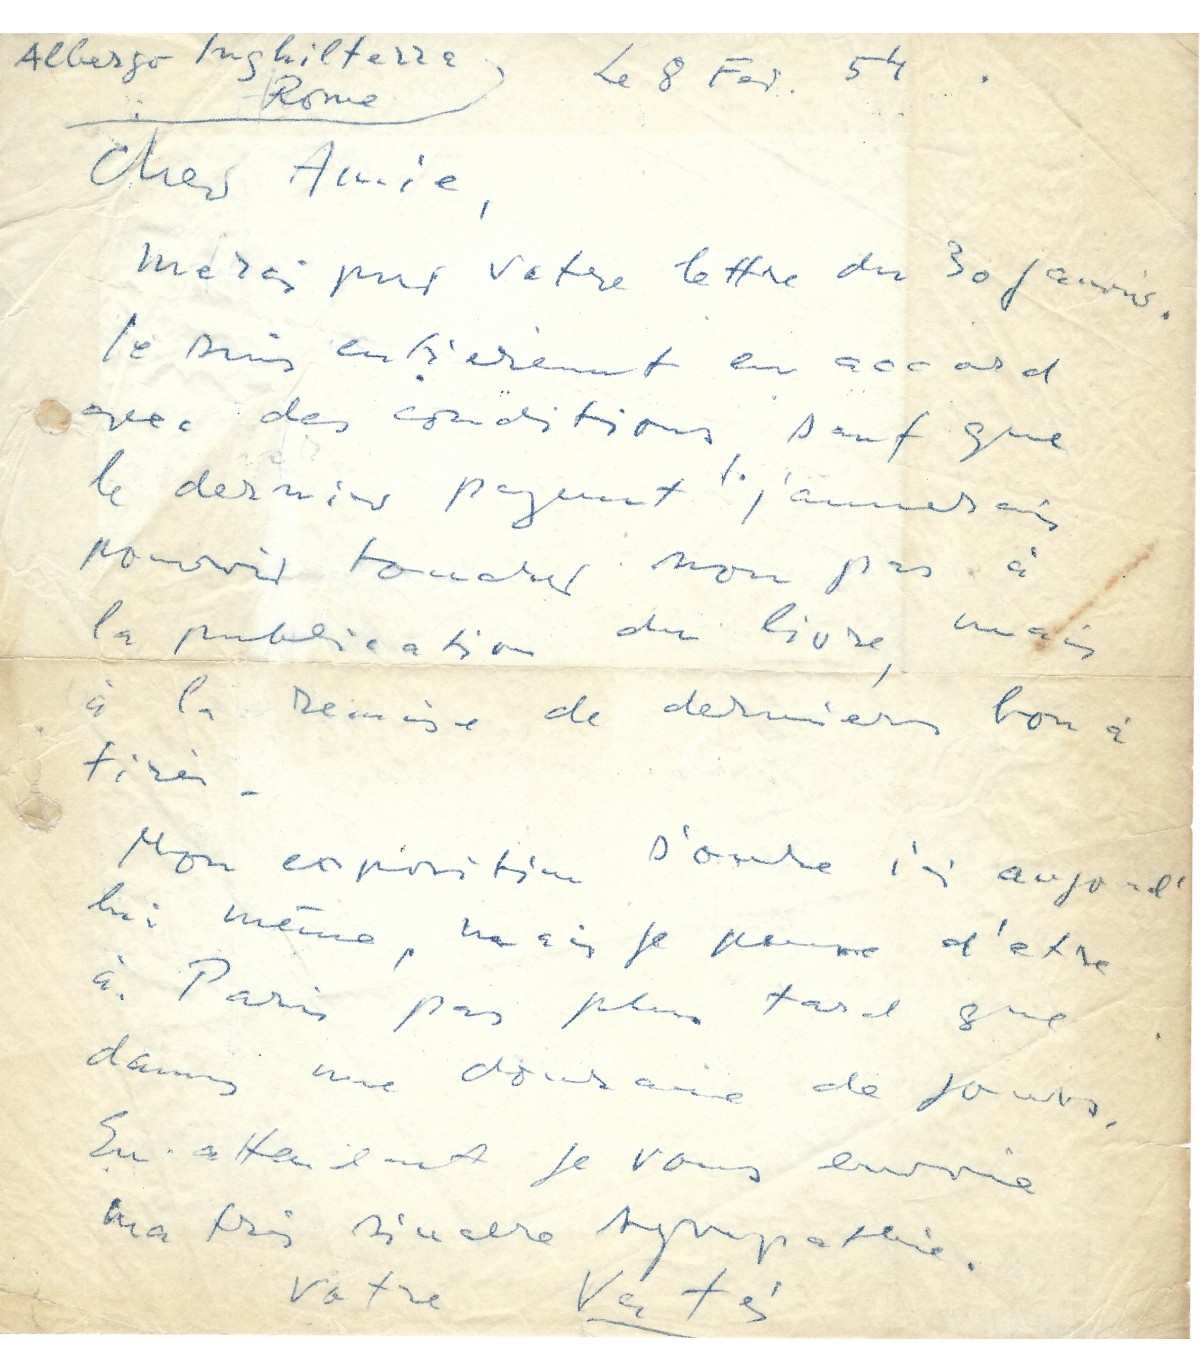 Albergo Inghilterra Le 8 Fev. 54.
Rome
Cher Amie,
Merci pour votre lettre du 30 Janvier.
Je suis entièrement en accord
avec des conditions, sauf que
le dernier payement j'aimerais
pouvoir toucher non pas à
la publication du livre, mais
à la remise de derniers bon à
tirer.
Mon exposition s'ouvre ici aujourd'
hui même, mais je pense d'etre
à Paris pas plus tard que
dans une douzaine de jours.
En attendant je vous envoie
ma très sincère sympathie.
Votre Vertès